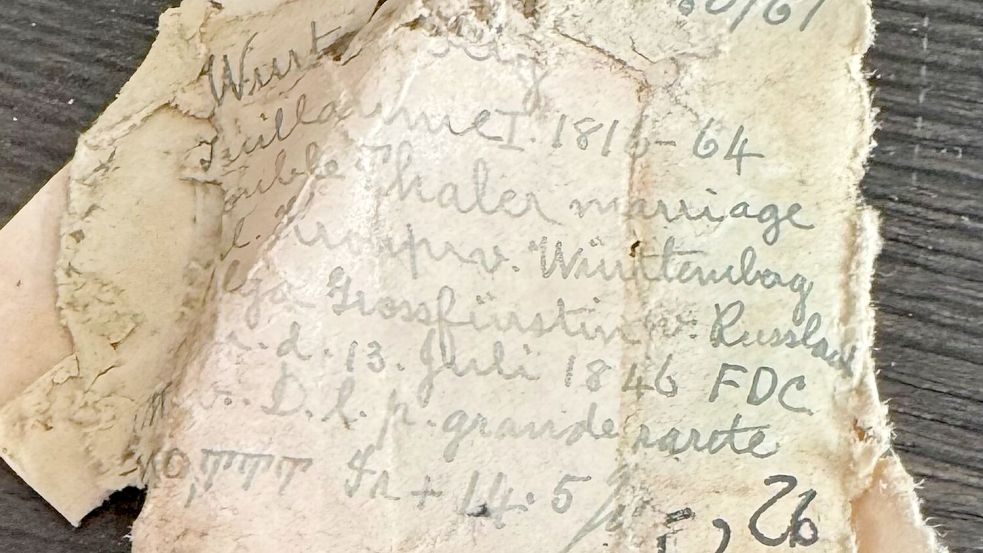 60/61
Guillaume I. 1816-64
Double Thaler marriage
Kronpr. v. Würtembag
Olga Grossfürstin v. Russland
d. 13. Juli 1846 FDC
v. D. l. p. grande rarete
Fr + 14.5
26